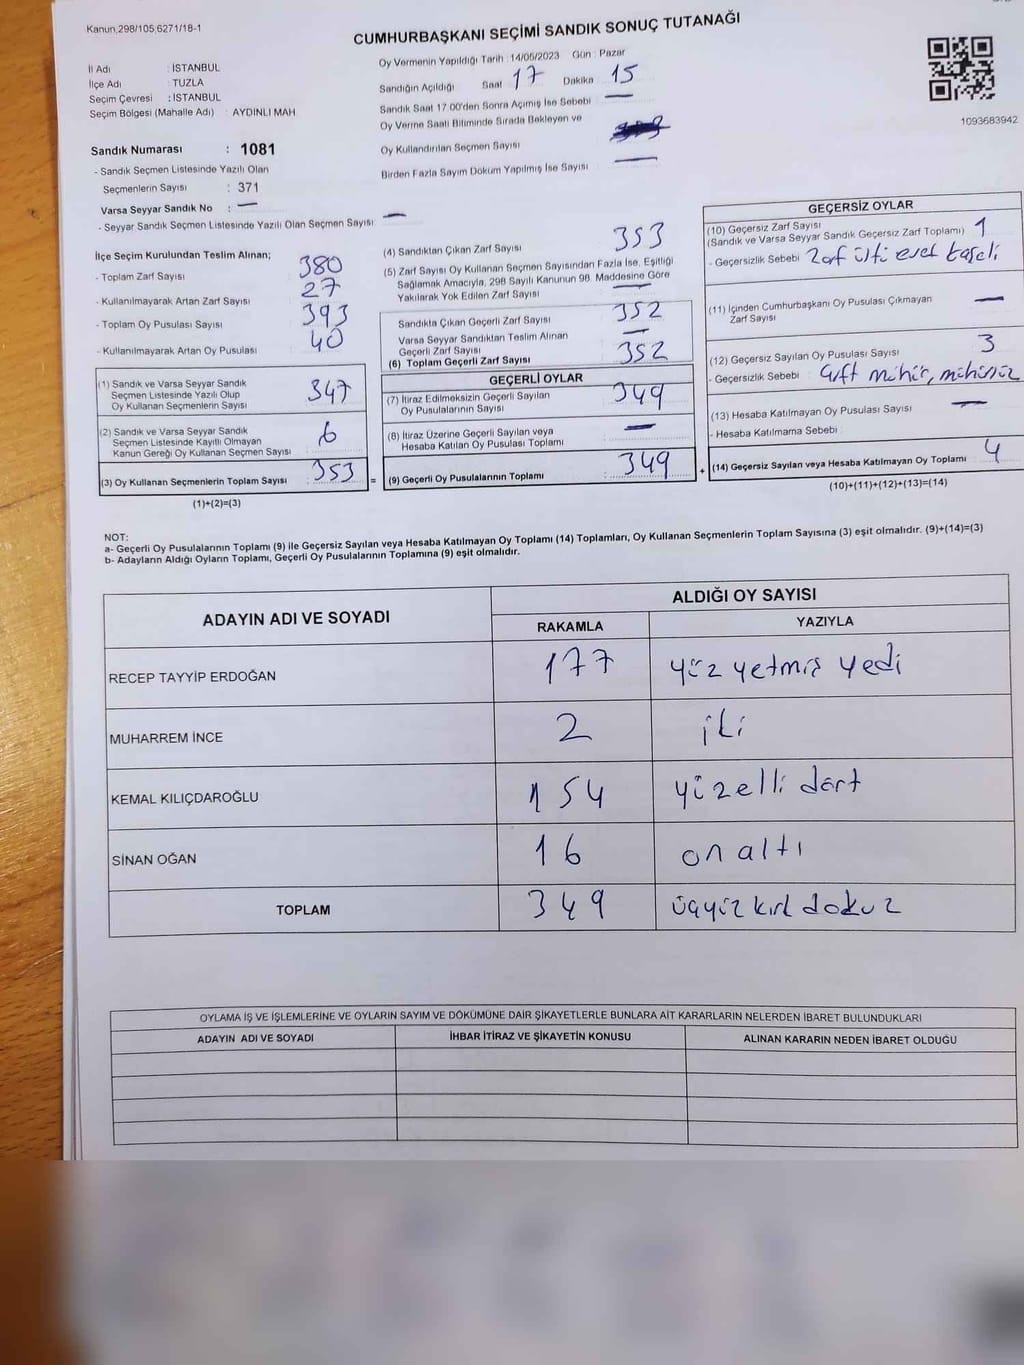 Kanun,298/105,6271/18-1
CUMHURBAŞKANI SEÇİMİ SANDIK SONUÇ TUTANAĞI
İl Adı : İSTANBUL
İlçe Adı : TUZLA
Seçim Çevresi : İSTANBUL
Seçim Bölgesi (Mahalle Adı) : AYDINLI MAH
Oy Vermenin Yapıldığı Tarih : 14/05/2023 Gün : Pazar
Sandığın Açıldığı Saat 17 Dakika 15
Sandık Saat 17.00'den Sonra Açımış İse Sebebi —
Oy Verme Saati Bitiminde Sırada Bekleyen ve
Oy Kullandırılan Seçmen Sayısı
Birden Fazla Sayım Döküm Yapılmış İse Sayısı —
1093683942
Sandık Numarası : 1081
- Sandık Seçmen Listesinde Yazılı Olan
Seçmenlerin Sayısı : 371
Varsa Seyyar Sandık No : —
- Seyyar Sandık Seçmen Listesinde Yazılı Olan Seçmen Sayısı : —
İlçe Seçim Kurulundan Teslim Alınan;
- Toplam Zarf Sayısı 380
- Kullanılmayarak Artan Zarf Sayısı 27
- Toplam Oy Pusulası Sayısı 393
- Kullanılmayarak Artan Oy Pusulası 40
(1) Sandık ve Varsa Seyyar Sandık
Seçmen Listesinde Yazılı Olup
Oy Kullanan Seçmenlerin Sayısı 347
(2) Sandık ve Varsa Seyyar Sandık
Seçmen Listesinde Kayıtlı Olmayan
Kanun Gereği Oy Kullanan Seçmen Sayısı 6
(3) Oy Kullanan Seçmenlerin Toplam Sayısı : 353 =
(1)+(2)=(3)
(4) Sandıktan Çıkan Zarf Sayısı 353
(5) Zarf Sayısı Oy Kullanan Seçmen Sayısından Fazla İse, Eşitliği
Sağlamak Amacıyla, 298 Sayılı Kanunun 98. Maddesine Göre
Yakılarak Yok Edilen Zarf Sayısı —
Sandıkta Çıkan Geçerli Zarf Sayısı 352
Varsa Seyyar Sandıktan Teslim Alınan
Geçerli Zarf Sayısı —
(6) Toplam Geçerli Zarf Sayısı 352
GEÇERLİ OYLAR
(7) İtiraz Edilmeksizin Geçerli Sayılan
Oy Pusulalarının Sayısı 349
(8) İtiraz Üzerine Geçerli Sayılan veya
Hesaba Katılan Oy Pusulası Toplamı —
(9) Geçerli Oy Pusulalarının Toplamı : 349 +
GEÇERSİZ OYLAR
(10) Geçersiz Zarf Sayısı
(Sandık ve Varsa Seyyar Sandık Geçersiz Zarf Toplamı) 1
- Geçersizlik Sebebi : Zarf üstü evet kaşeli
(11) İçinden Cumhurbaşkanı Oy Pusulası Çıkmayan
Zarf Sayısı —
(12) Geçersiz Sayılan Oy Pusulası Sayısı 3
- Geçersizlik Sebebi : Çift mühür, mühürsüz
(13) Hesaba Katılmayan Oy Pusulası Sayısı —
- Hesaba Katılmama Sebebi :
(14) Geçersiz Sayılan veya Hesaba Katılmayan Oy Toplamı 4
(10)+(11)+(12)+(13)=(14)
NOT:
a- Geçerli Oy Pusulalarının Toplamı (9) ile Geçersiz Sayılan veya Hesaba Katılmayan Oy Toplamı (14) Toplamları, Oy Kullanan Seçmenlerin Toplam Sayısına (3) eşit olmalıdır. (9)+(14)=(3)
b- Adayların Aldığı Oyların Toplamı, Geçerli Oy Pusulalarının Toplamına (9) eşit olmalıdır.
ADAYIN ADI VE SOYADI
ALDIĞI OY SAYISI
RAKAMLA YAZIYLA
RECEP TAYYİP ERDOĞAN 177 yüz yetmiş yedi
MUHARREM İNCE 2 iki
KEMAL KILIÇDAROĞLU 154 yüzelli dört
SİNAN OĞAN 16 on altı
TOPLAM 349 üçyüz kırk dokuz
OYLAMA İŞ VE İŞLEMLERİNE VE OYLARIN SAYIM VE DÖKÜMÜNE DAİR ŞİKAYETLERLE BUNLARA AİT KARARLARIN NELERDEN İBARET BULUNDUKLARI
ADAYIN ADI VE SOYADI İHBAR İTİRAZ VE ŞİKAYETİN KONUSU ALINAN KARARIN NEDEN İBARET OLDUĞU